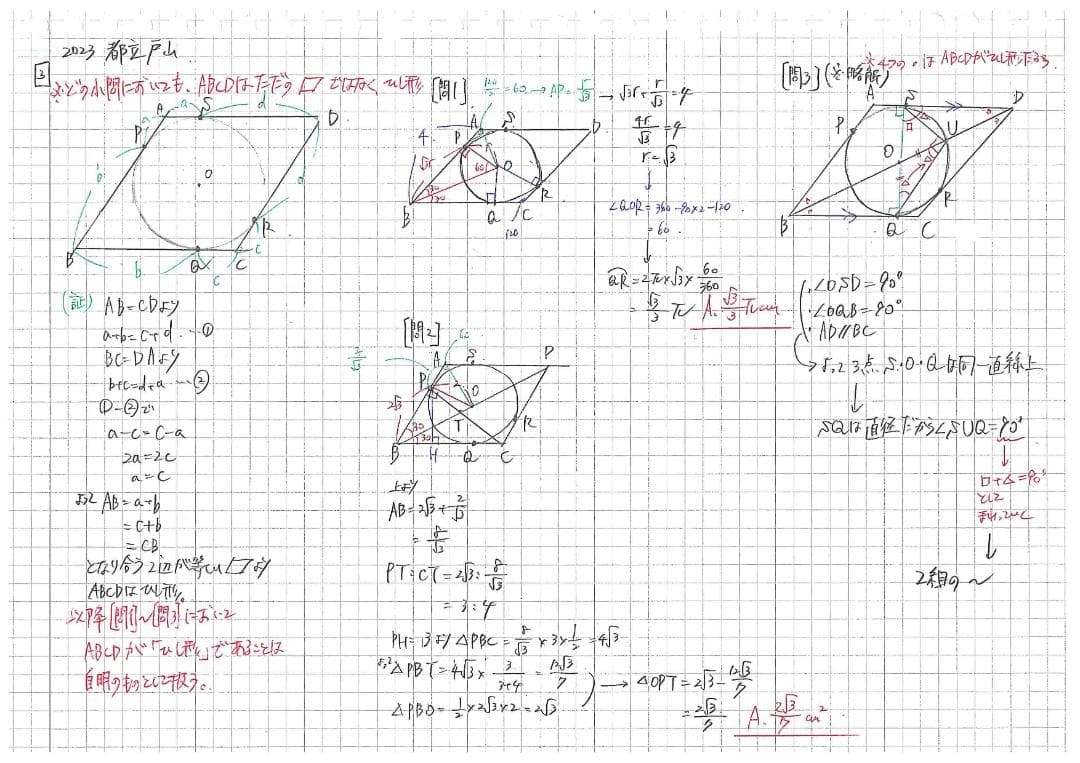 2023 都立戸山
3
※どの小問においても、ABCDはただの▱ではなくひし形
(証) AB=CDより
a+b=c+d …①
BC=DAより
b+c=d+a …②
①-②で
a-c=c-a
2a=2c
a=c
よって AB=a+b
=c+b
=CB
となり合う2辺が等しい▱より
ABCDはひし形。
以降[問1]~[問3]において
ABCDが「ひし形」であることは
自明のものとして扱う。
[問1]
120/2=60→AP=r/√3
→√3r+r/√3=4
4r/√3=4
r=√3
∠QOR=360-90×2-120
=60.
QR=2π×√3×60/360
=√3/3π
A. √3/3πcm
[問2]
上より
AB=2√3+2/√3
=8/√3
PT:CT=2√3:8/√3
=3:4
PH=3より△PBC=8/√3×3×1/2=4√3
よって△PBT=4√3×3/3+4=12√3/7
△PBO=1/2×2√3×2=2√3
→△OPT=2√3-12√3/7
=2√3/7
A. 2√3/7cm²
[問3](※略解)
※4つの・はABCDがひし形だから
・∠OSD=90°
・∠OQB=90°
・AD//BC
→よって3点S・O・Qは同一直線上
SQは直径だから∠SUQ=90°
□+△=90°
として
まわっていく
2組の~